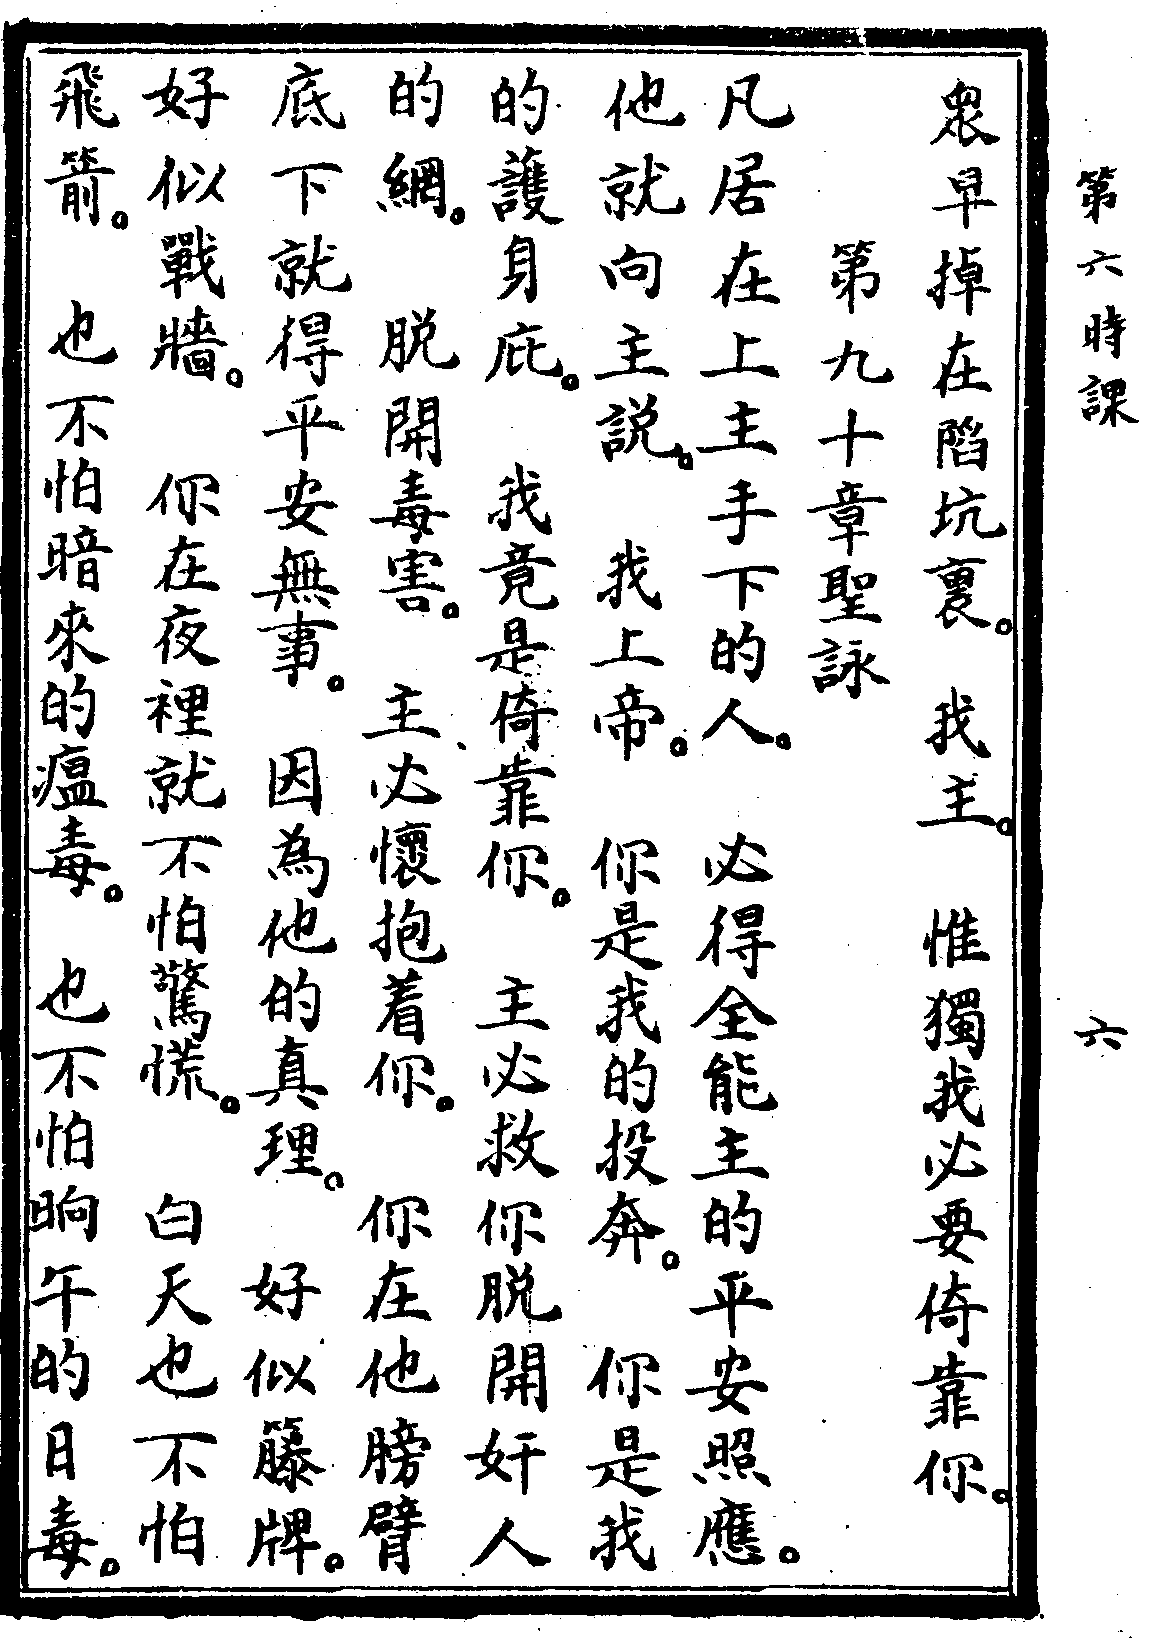 第六時課 六
眾早掉在陷坑裏。 我主。 惟獨我必要倚靠你。
第九十章聖詠
凡居在上主手下的人。 必得全能主的平安照應。
他就向主說。 我上帝。 你是我的投奔。 你是我
的護身庇。 我竟是倚靠你。 主必救你脫開奸人
的網。 脫開毒害。 主必懷抱着你。 你在他膀臂
底下就得平安無事。 因為他的真理。 好似籐牌。
好似戰牆。 你在夜裡就不怕驚慌。 白天也不怕
飛箭。 也不怕暗來的瘟毒。 也不怕晌午的日毒。